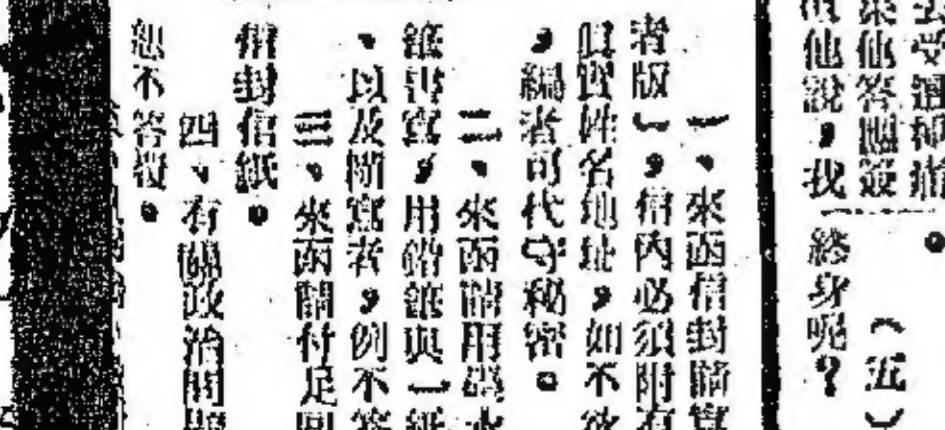 去受
他答應簽
他說，我
終身呢？
（五）
一、來函信封請寫
者版﹂，信內必須附有
眞實姓名地址，如不欲
，編者可代守秘密。
二、來函請用墨水
紙書寫，用鉛錐與一紙
、以及簡寫者，例不答
三、來函關付足回
信封信紙。
四、有關政治問題
恕不答覆。